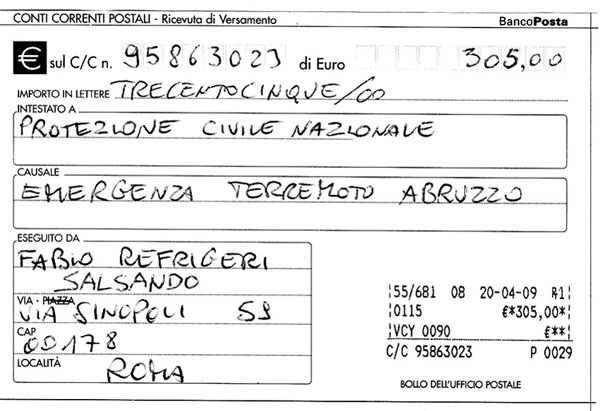 CONTI CORRENTI POSTALI - Ricevuta di Versamento BancoPosta
€ sul C/C n. 95863023 di Euro 305,00
IMPORTO IN LETTERE TRECENTOCINQUE/00
INTESTATO A
PROTEZIONE CIVILE NAZIONALE
CAUSALE
EMERGENZA TERREMOTO ABRUZZO
ESEGUITO DA
FABIO REFRIGERI
SALSANDO
VIA - PIAZZA
VIA SINOPOLI 59
CAP
00178
LOCALITÀ
ROMA
|55/681 08 20-04-09 R1|
|0115 €*305,00*|
|VCY 0090 €**|
C/C 95863023 P 0029
BOLLO DELL'UFFICIO POSTALE